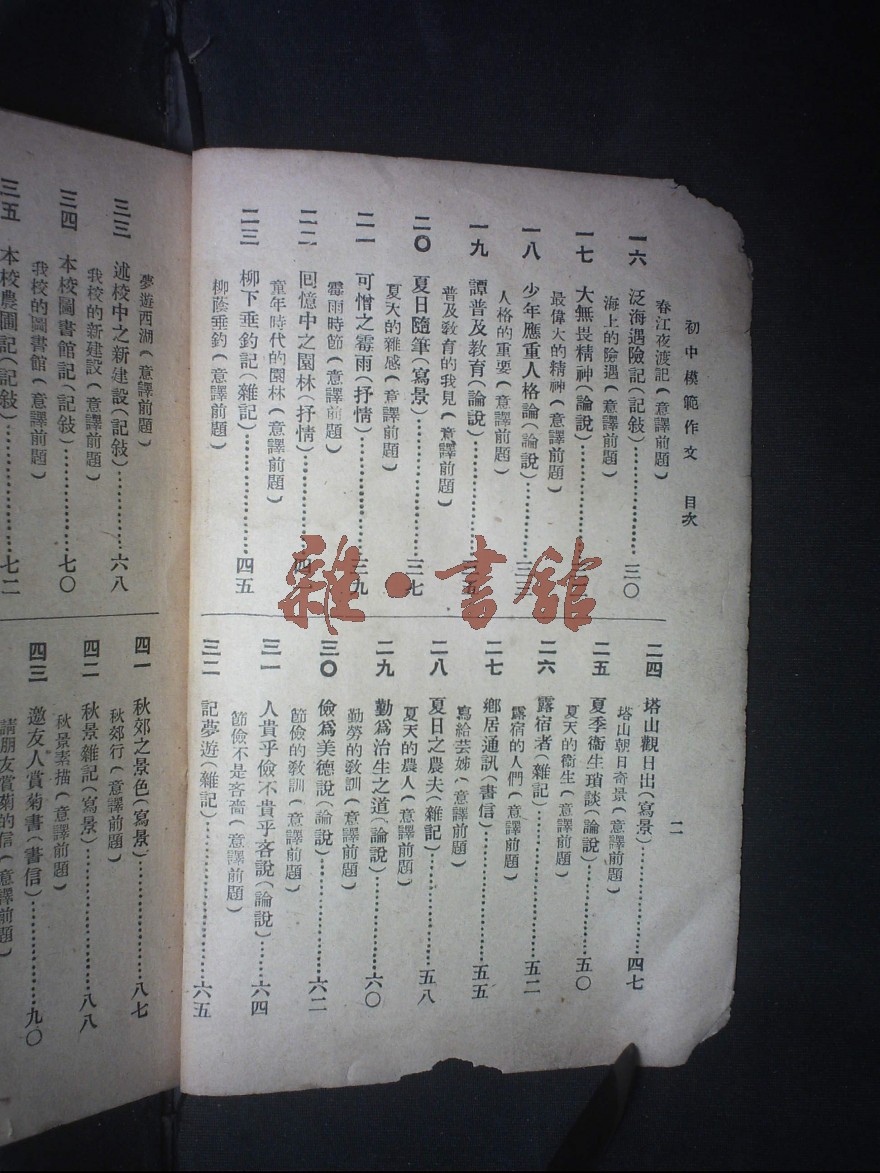 初中模範作文　目次
二
春江夜渡記(意譯前題)
一六　泛海遇險記(記敍)……三〇
海上的險遇(意譯前題)
一七　大無畏精神(論說)……
最偉大的精神(意譯前題)
一八　少年應重人格論(論說)……三三
人格的重要(意譯前題)
一九　譚普及教育(論說)……三五
普及敎育的我見(意譯前題)
二〇　夏日隨筆(寫景)……三七
夏天的雜感(意譯前題)
二一　可憎之霉雨(抒情)……三九
霉雨時節(意譯前題)
二二　回憶中之園林(抒情)……四
童年時代的園林(意譯前題)
二三　柳下垂釣記(雜記)……四五
柳蔭垂釣(意譯前題)
二四　塔山觀日出(寫景)……四七
塔山朝日奇景(意譯前題)
二五　夏季衞生瑣談(論說)……五〇
夏天的衞生(意譯前題)
二六　露宿者(雜記)……五二
露宿的人們(意譯前題)
二七　鄉居通訊(書信)……五五
寫給芸姊(意譯前題)
二八　夏日之農夫(雜記)……五八
夏天的農人(意譯前題)
二九　勤爲治生之道(論說)……六〇
勤勞的敎訓(意譯前題)
三〇　儉爲美德說(論說)……六二
節儉的敎訓(意譯前題)
三一　人貴乎儉不貴乎吝說(論說)……六四
節儉不是吝嗇(意譯前題)
三二　記夢遊(雜記)……六五
夢遊西湖(意譯前題)
三三　述校中之新建設(記敍)……六八
我校的新建設(意譯前題)
三四　本校圖書館記(記敍)……七〇
我校的圖書館(意譯前題)
三五　本校農圃記(記敍)……七二
四一　秋郊之景色(寫景)……八七
秋郊行(意譯前題)
四二　秋景雜記(寫景)……八八
秋景素描(意譯前題)
四三　邀友人賞菊書(書信)……九〇
請朋友賞菊的信(意譯前題)
雜·書館